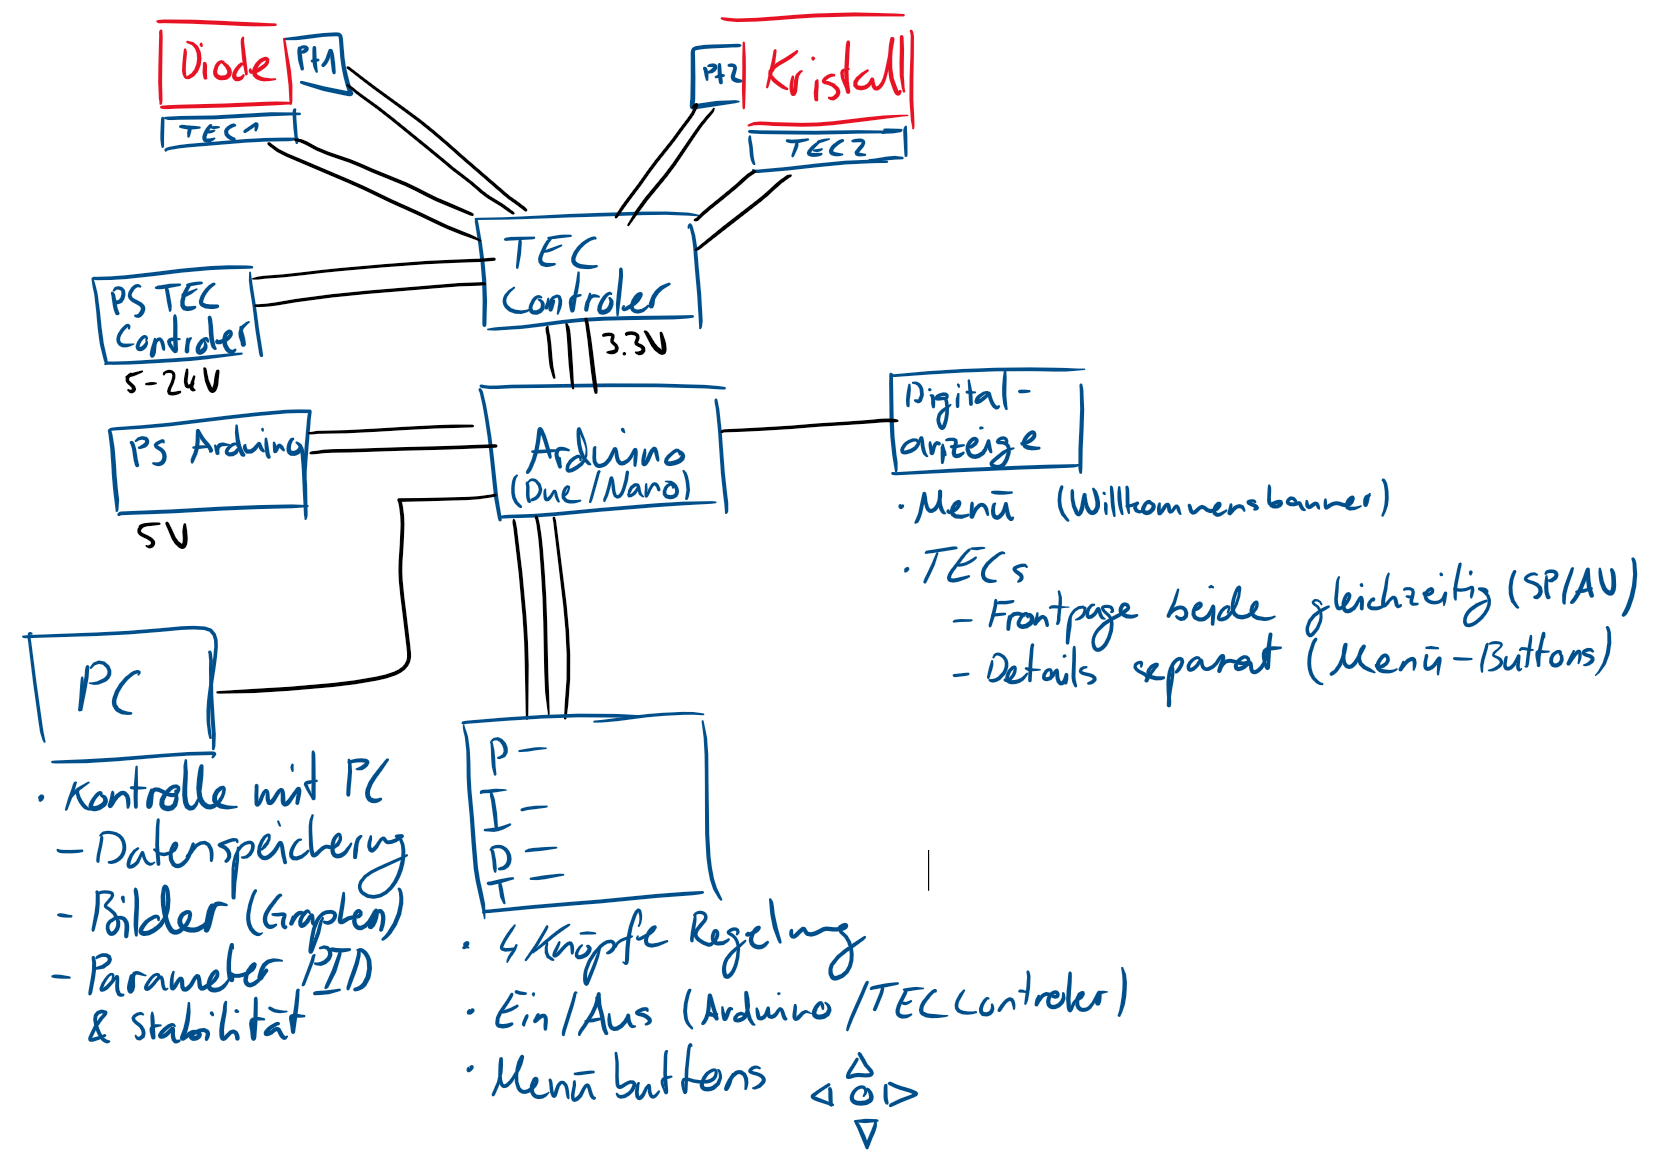 Diode
Pt1
TEC1
Pt2
Kristall
TEC2
TEC
Controler
PS TEC
Controler
5-24V
3.3V
PS Arduino
5V
Arduino
(Due/Nano)
Digital-
anzeige
• Menü (Willkommensbanner)
• TECs
- Frontpage beide gleichzeitig (SP/AV)
- Details separat (Menü-Buttons)
PC
• Kontrolle mit PC
- Datenspeicherung
- Bilder (Graphen)
- Parameter PID
& Stabilität
P -
I -
D -
T -
• 4 Knöpfe Regelung
• Ein/Aus (Arduino/TEC Controler)
• Menü buttons